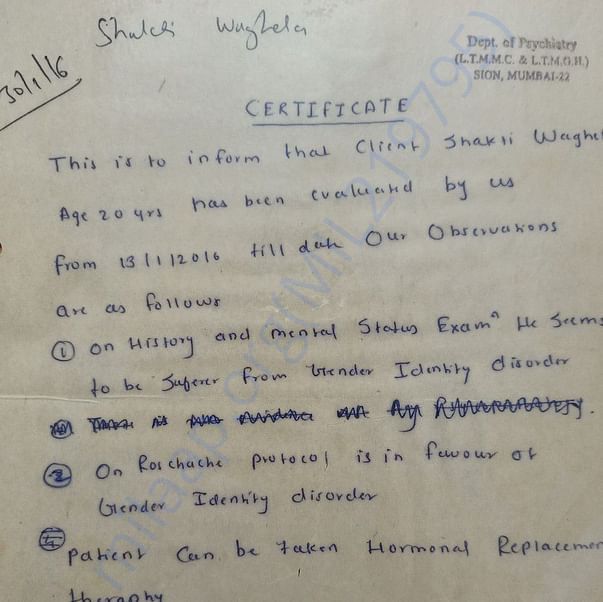 Shakti Waghela
30/1/16
Dept. of Psychiatry
(L.T.M.M.C. & L.T.M.G.H.)
SION, MUMBAI-22
CERTIFICATE
This is to inform that Client Shakti Waghel
Age 20 yrs has been evaluated by us
from 13/1/2016 till date Our Observations
are as follows
① On History and mental Status Examⁿ He Seems
to be Suferer from Gender Identity disorder
② On Roschache protocol is in favour of
Gender Identity disorder
Patient Can be taken Hormonal Replacemen
theraphy
milaap.org/MIL219795)